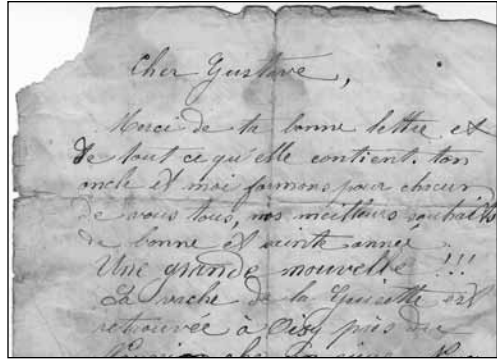 Cher Gustave,
Merci de ta bonne lettre et
de tout ce qu'elle contient. ton
oncle et moi formons pour chacun
de vous tous, nos meilleurs souhaits
de bonne et sainte année.
Une grande nouvelle !!!
La vache de la Guicette est
retrouvée à Oisy près du